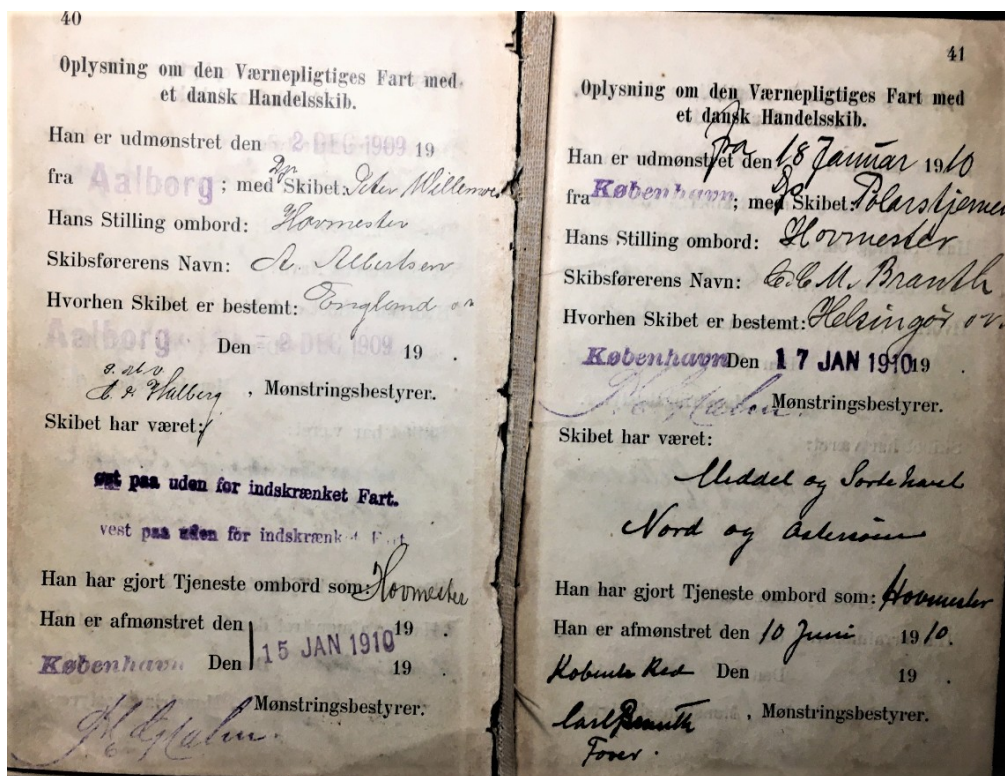 40
Oplysning om den Værnepligtiges Fart med
et dansk Handelsskib.
Han er udmønstret den 2 DEC 1909 19
fra Aalborg ; med Skibet: Peter Willemoes
Hans Stilling ombord: Hovmester
Skibsførerens Navn: A. Albertsen
Hvorhen Skibet er bestemt: England
Aalborg Den 2 DEC 1909 19 .
, Mønstringsbestyrer.
Skibet har været:
øst paa uden for indskrænket Fart.
vest paa uden for indskrænket Fart.
Han har gjort Tjeneste ombord som: Hovmester
Han er afmønstret den 19 .
København Den 15 JAN 1910 19 .
Mønstringsbestyrer.
41
Oplysning om den Værnepligtiges Fart med
et dansk Handelsskib.
Han er udmønstret den fra 18 Januar 1910
fra København ; med Skibet: Polarstjernen
Hans Stilling ombord: Hovmester
Skibsførerens Navn: Branth
Hvorhen Skibet er bestemt: Helsingør
København Den 17 JAN 1910 19 .
Mønstringsbestyrer.
Skibet har været:
Middel og Sortehavet
Nord og Østersøen
Han har gjort Tjeneste ombord som: Hovmester
Han er afmønstret den 10 Juni 1910.
Red Den 19 .
Carl , Mønstringsbestyrer.